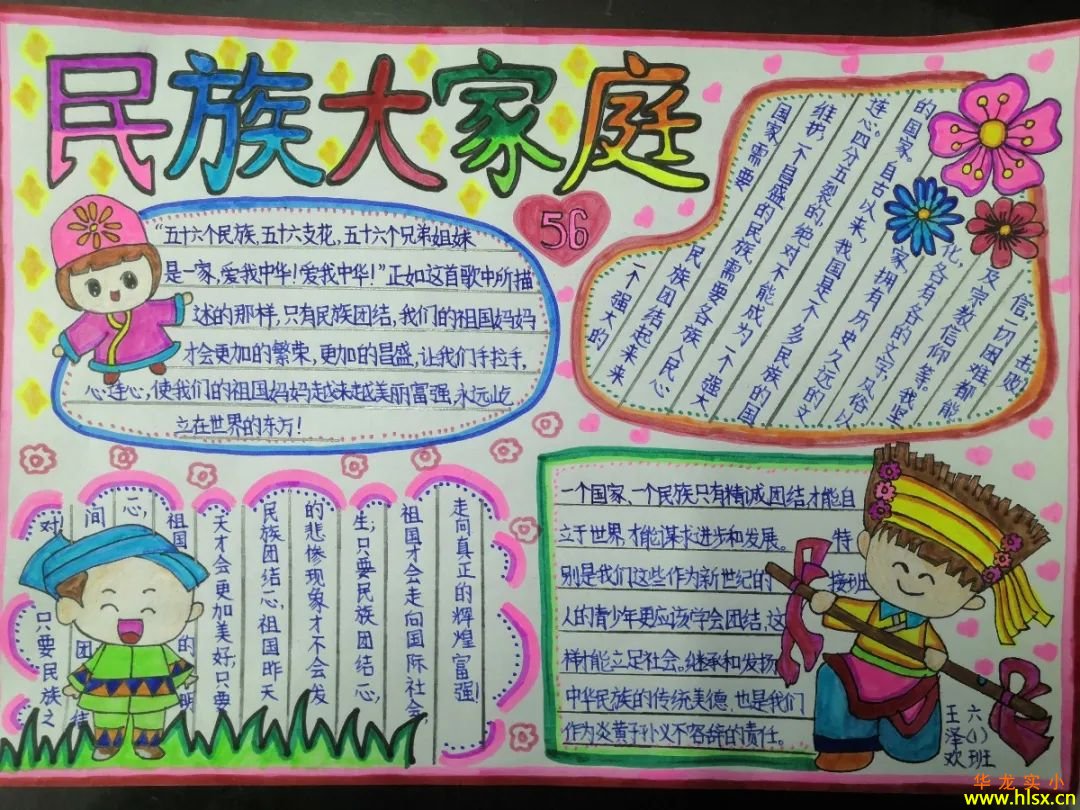 民族大家庭
56
“五十六个民族,五十六支花,五十六个兄弟姐妹
是一家,爱我中华!爱我中华!”正如这首歌中所描
述的那样,只有民族团结,我们的祖国妈妈
才会更加的繁荣,更加的昌盛,让我们手拉手,
心连心,使我们的祖国妈妈越来越美丽富强,永远屹
立在世界的东方!
一个强大的
国家需要民族团结起来来
维护,不昌盛的民族需要各族人民心
连心。四分五裂的”绝对不能成为一个强大
的国家。自古以来,我国是不个多民族的国
家,拥有历史久远的文
化,各有各的文字、风俗以
及宗教信仰等。我坚
信一切困难都能
击败
对只要民族之
间团结
心,
祖国的明
天才会更加美好;只要
民族团结一心,祖国昨天
的悲惨现象才不会发
生;只要民族团结一心,
祖国才会走向国际社会
走向真正的辉煌富强!
一个国家、一个民族只有精诚团结才能自
立于世界,才能谋求进步和发展。特
别是我们这些作为新世纪的接班
人的青少年更应该学会团结,这
样才能立足社会。继承和发扬
中华民族的传统美德,也是我们
作为炎黄子孙义不容辞的责任。
六(1)班
王泽欢
华龙实小
www.hlsx.cn